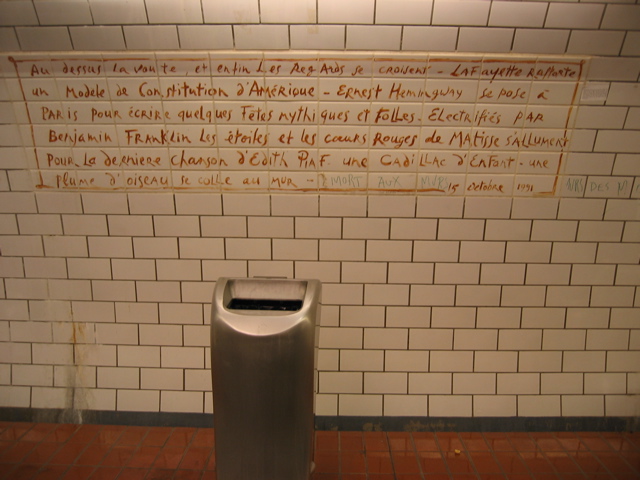 Au dessus la voute, et enfin Les RegARds se croisent - LAFayette RAPPORTE
un Modele de Constitution d'Amérique - Ernest Hemingway se pose à
PARis pour écrire quelques Fêtes mythiques et Folles. Electrifiés PAR
Benjamin Franklin Les étoiles et les cœurs Rouges de MATisse S'ALLUMENT
POUR La dernière chanson d'Edith PIAF une CADILLAC d'Enfant - une
Plume d'oiseau se colle au MUR - MORT AUX MURS 15 octobre 1991